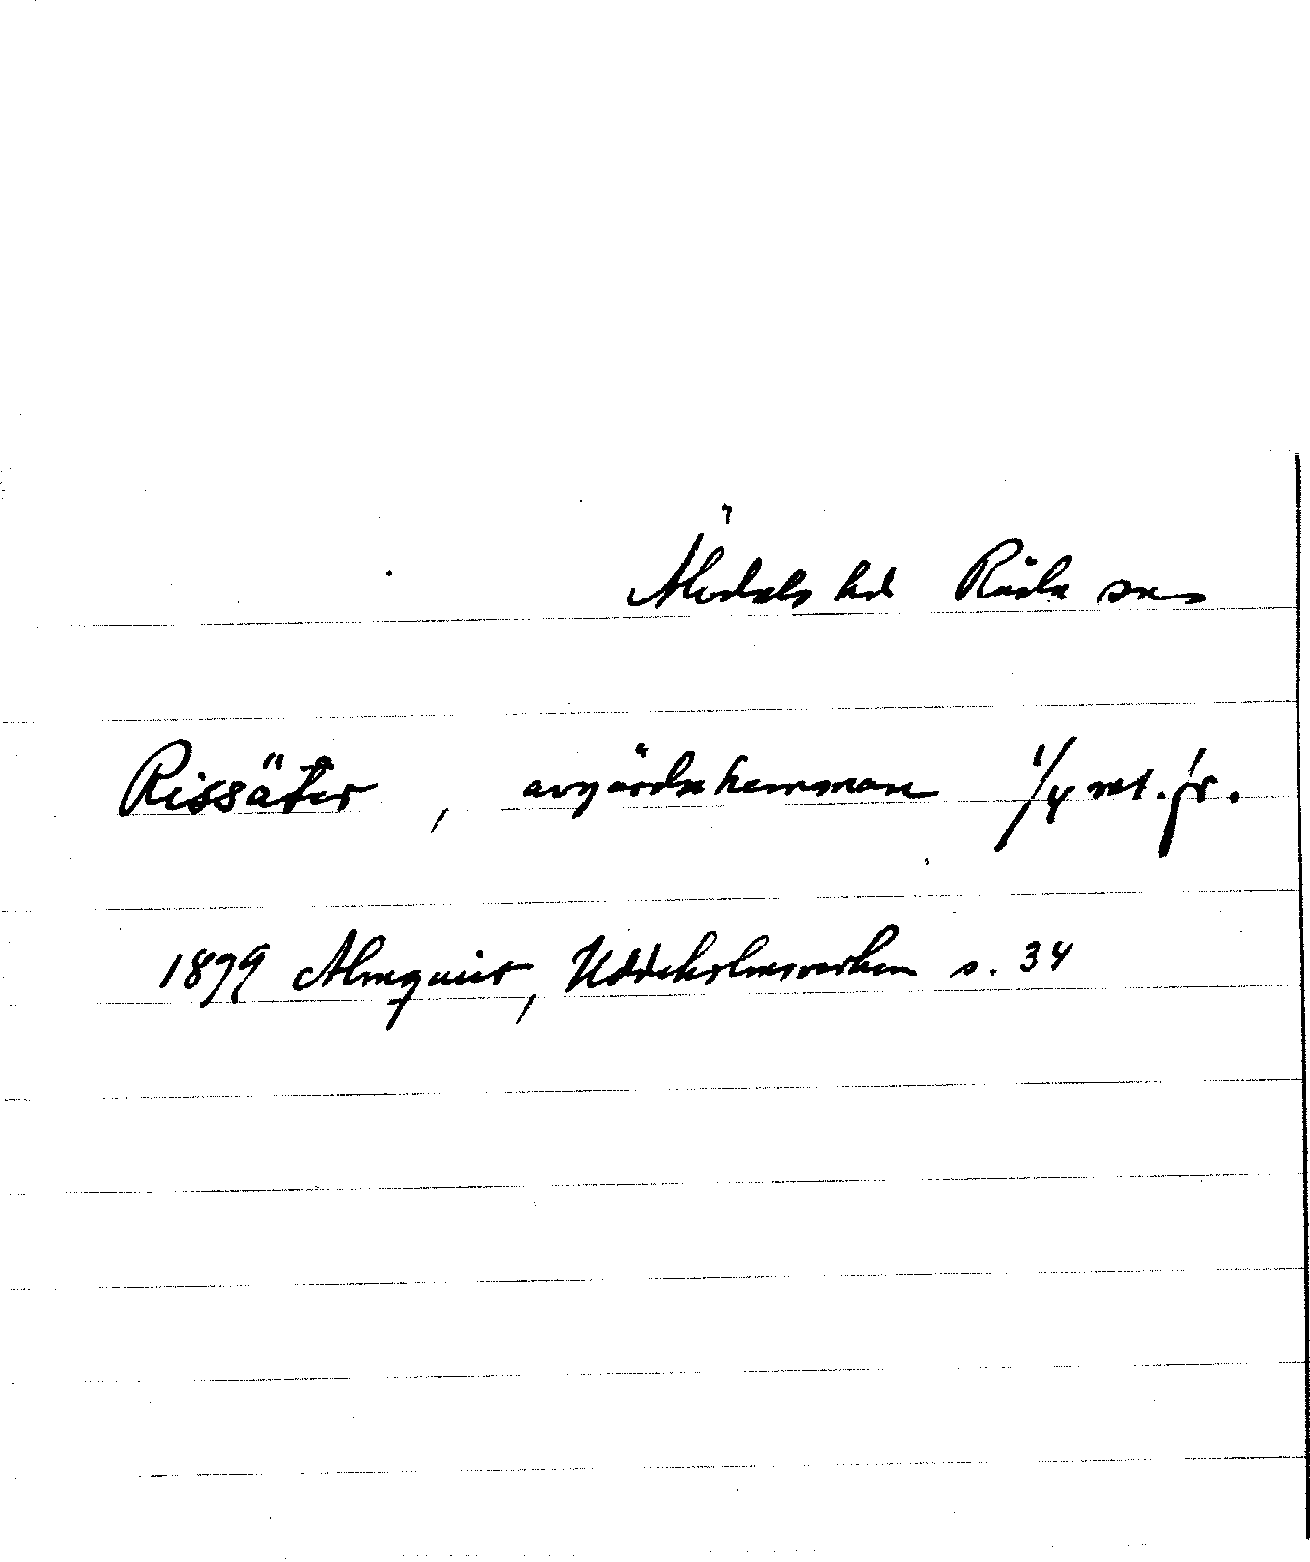 Älvdals hd Råda sn
Rissäter, avgärdahemman 1/4 mt. fr.
1879 Almquist, Uddeholmsverken s. 34